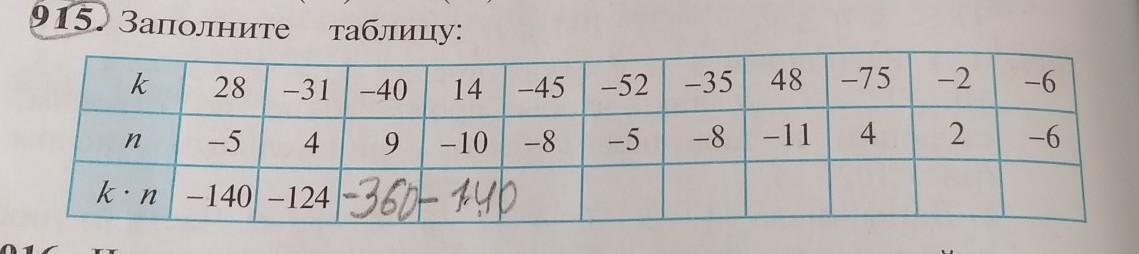 915. Заполните таблицу:
k 28 −31 −40 14 −45 −52 −35 48 −75 −2 −6
n −5 4 9 −10 −8 −5 −8 −11 4 2 −6
k · n −140 −124 -360 - 140